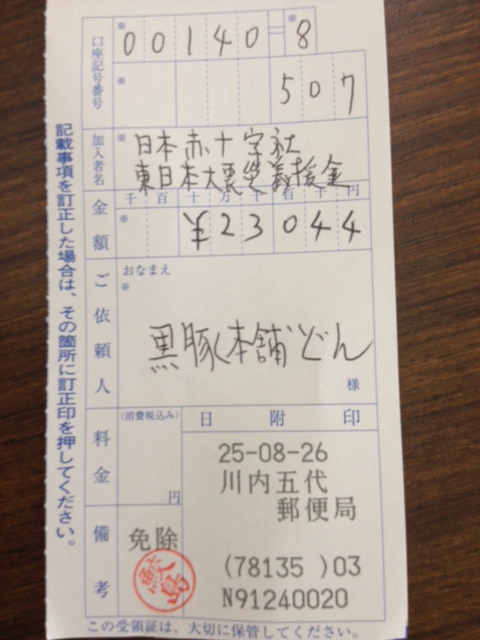 記載事項を訂正した場合は、その箇所に訂正印を押してください。
口座記号番号
※ 00140 = ※ 8
※ 507
加入者名
※ 日本赤十字社
東日本大震災義援金
金額
千百十万千百十円
※ ¥23044
ご依頼人
おなまえ
※
黒豚本舗どん
様
料金
(消費税込み)
円
日附印
25-08-26
川内五代
郵便局
(78135 )03
N91240020
備考
免除
鮫島
この受領証は、大切に保管してください。